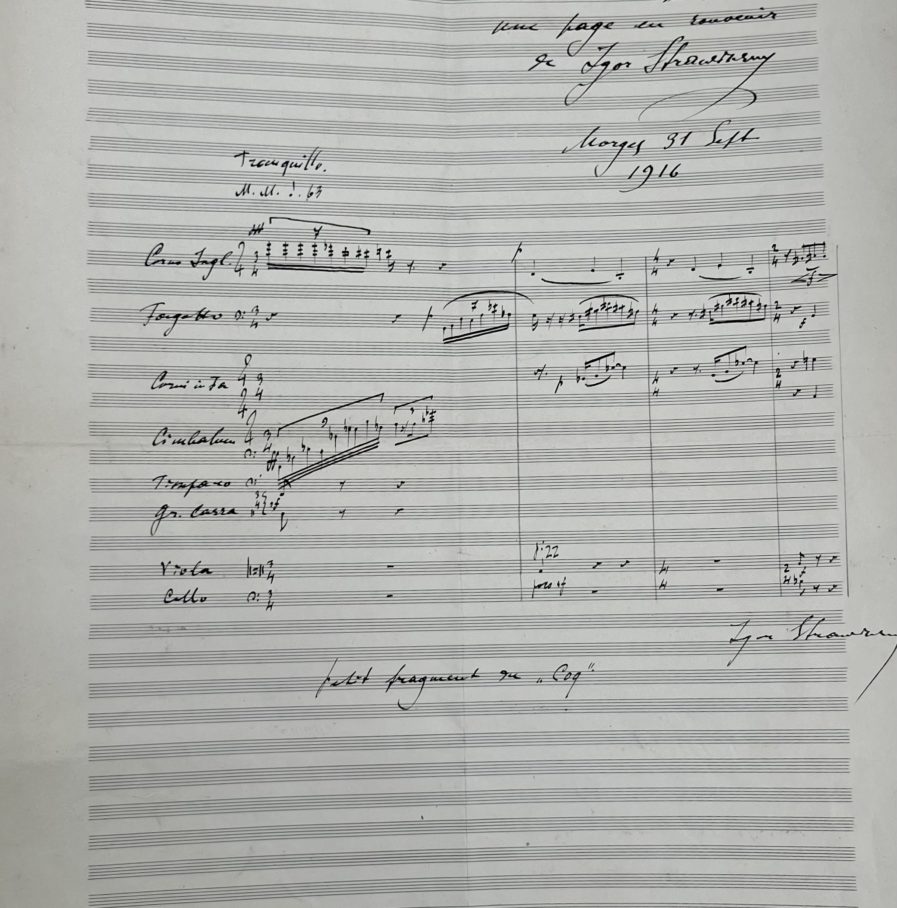 une page en souvenir
de Igor Strawinsky
Morges 31 Sept
1916
Tranquillo.
M. M. ♩. 63
Corno Ingl.
Fagotto
Corni in Fa
Cimbalum
Timpano
Gr. Cassa
Viola
Cello
Igor Strawinsky
petit fragment du „Coq“